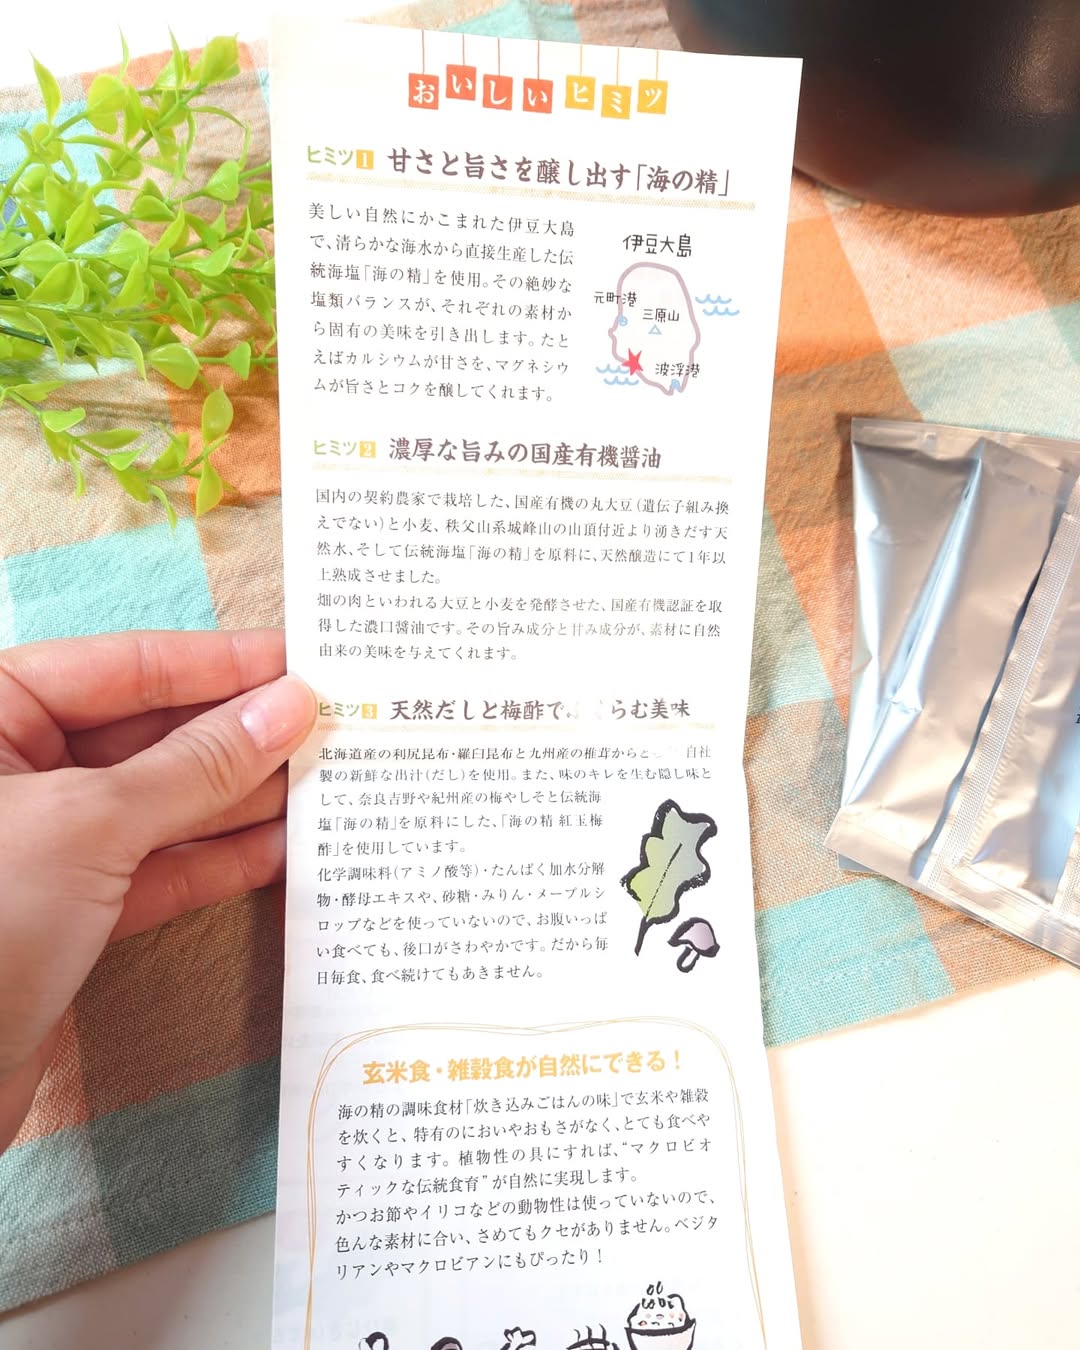 おいしいヒミツ
ヒミツ1 甘さと旨さを醸し出す「海の精」
美しい自然にかこまれた伊豆大島
で、清らかな海水から直接生産した伝
統海塩「海の精」を使用。その絶妙な
塩類バランスが、それぞれの素材か
ら固有の美味を引き出します。たと
えばカルシウムが甘さを、マグネシウ
ムが旨さとコクを醸してくれます。
伊豆大島
元町港
三原山
波浮港
ヒミツ2 濃厚な旨みの国産有機醤油
国内の契約農家で栽培した、国産有機の丸大豆(遺伝子組み換
えでない)と小麦、秩父山系城峰山の山頂付近より湧きだす天
然水、そして伝統海塩「海の精」を原料に、天然醸造にて1年以
上熟成させました。
畑の肉といわれる大豆と小麦を発酵させた、国産有機認証を取
得した濃口醤油です。その旨み成分と甘み成分が、素材に自然
由来の美味を与えてくれます。
ヒミツ3 天然だしと梅酢で らむ美味
北海道産の利尻昆布・羅臼昆布と九州産の椎茸からと 自社
製の新鮮な出汁(だし)を使用。また、味のキレを生む隠し味と
して、奈良吉野や紀州産の梅やしそと伝統海
塩「海の精」を原料にした、「海の精 紅玉梅
酢」を使用しています。
化学調味料(アミノ酸等)・たんぱく加水分解
物・酵母エキスや、砂糖・みりん・メープルシ
ロップなどを使っていないので、お腹いっぱ
い食べても、後口がさわやかです。だから毎
日毎食、食べ続けてもあきません。
玄米食・雑穀食が自然にできる!
海の精の調味食材「炊き込みごはんの味」で玄米や雑穀
を炊くと、特有のにおいやおもさがなく、とても食べや
すくなります。植物性の具にすれば、“マクロビオ
ティックな伝統食育”が自然に実現します。
かつお節やイリコなどの動物性は使っていないので、
色んな素材に合い、さめてもクセがありません。ベジタ
リアンやマクロビアンにもぴったり!